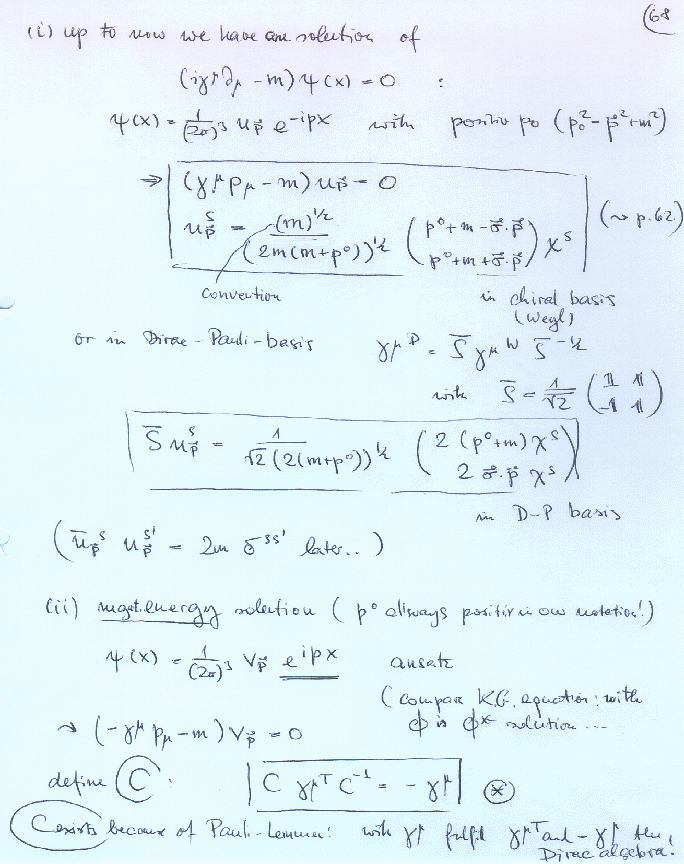 (68
(i) up to now we have one solution of
(iγ^μ ∂_μ - m) ψ(x) = 0 :
ψ(x) = 1/(2π)^3 u_p⃗ e^{-ipx} with positiv p0 (p_0^2 - p⃗^2 + m^2)
→ (γ^μ p_μ - m) u_p⃗ = 0
u_p⃗^s = (m)^{1/2} / (2m(m+p^0))^{1/2} ( p^0 + m - σ⃗·p⃗ ; p^0 + m + σ⃗·p⃗ ) χ^s (~> p. 62)
convention in chiral basis
(Weyl)
or in Dirac-Pauli-basis γ^{μ D} = S̄ γ^{μ W} S̄^{-1}
with S̄ = 1/√2 ( 1 1 ; -1 1 )
S̄ u_p⃗^s = 1/(√2 (2(m+p^0))^{1/2}) ( 2 (p^0+m) χ^s ; 2 σ⃗·p⃗ χ^s )
in D-P basis
( ū_p⃗^s u_p⃗^{s'} = 2m δ^{ss'} later.. )
(ii) negat. energy solution ( p^0 always positiv in our notation!)
ψ(x) = 1/(2π)^3 v_p⃗ e^{ipx} ansatz
( compare KG. equation: with
→ (-γ^μ p_μ - m) v_p⃗ = 0 φ is φ* solution ...
define C : C γ^{μT} C^{-1} = - γ^μ ⊛
C exists because of Pauli-Lemma: with γ^μ fulfil γ^{μT} and -γ^μ the
Dirac algebra!